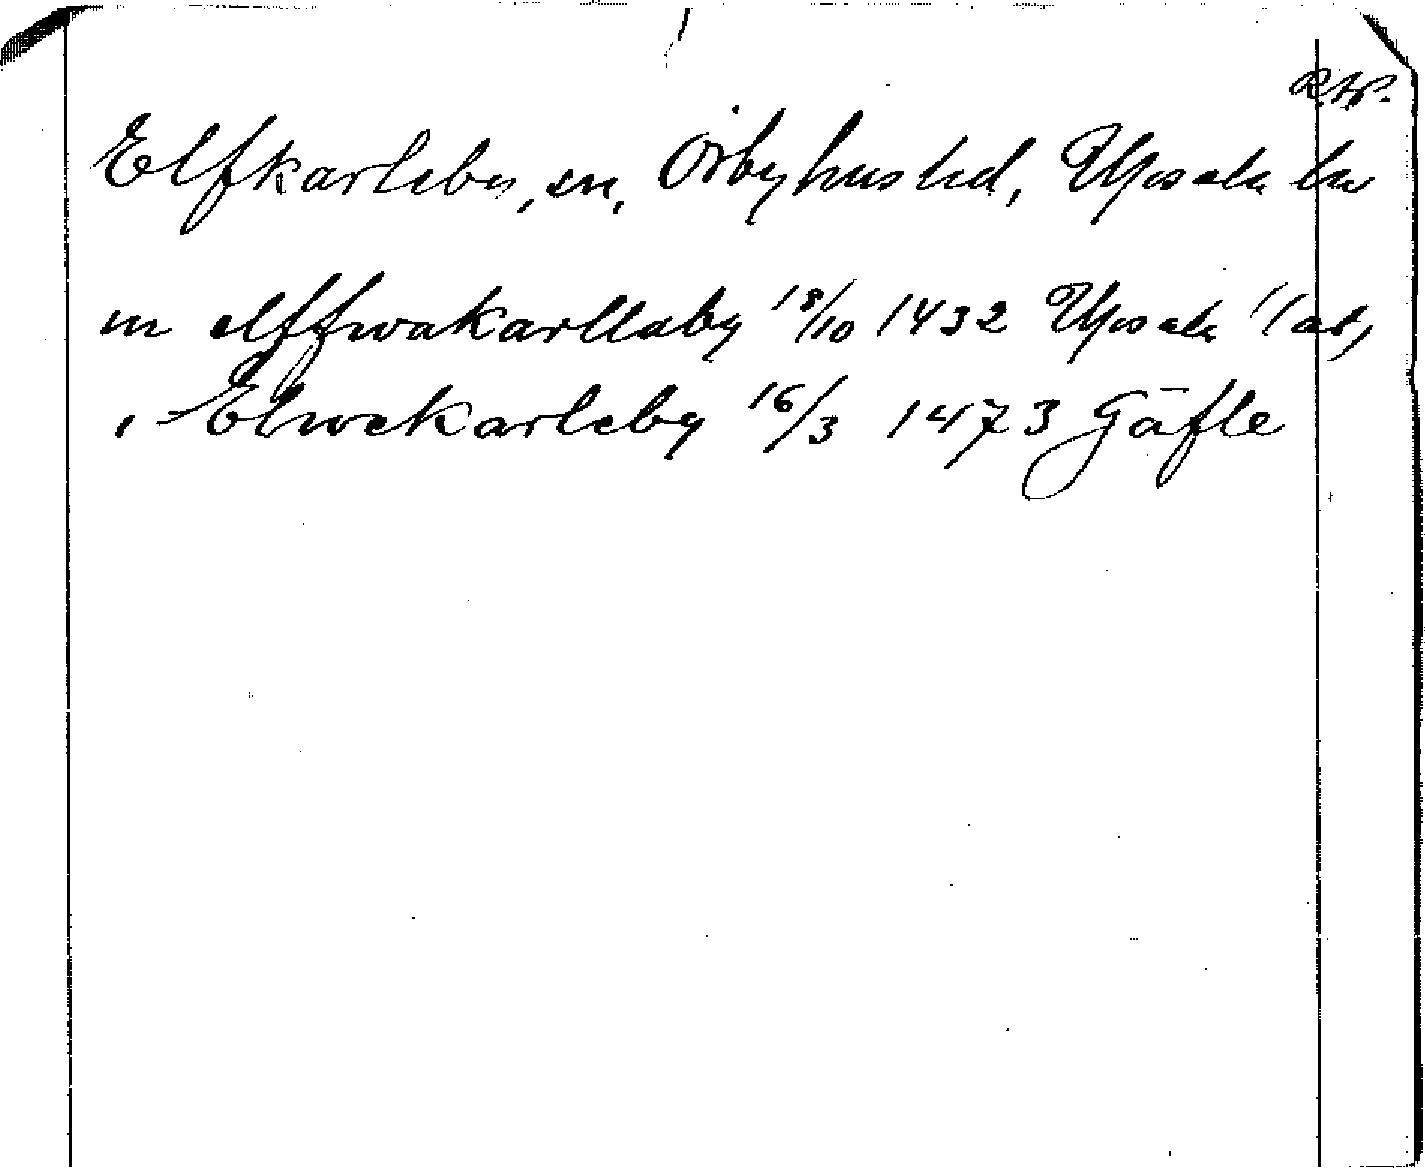 R.W.
Elfkarleby, sn, Örbyhus hd, Upsala län
in elffwakarllaby 18/10 1432 Upsala
i Elwekarleby 16/3 1473 Gäfle